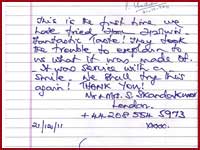 This is the first time we
have tried
Fantastic Taste! They took
the trouble to explain to
us what it was made of.
It was service with a
smile. We shall try this
again! THANK YOU!
Mr & Mrs. S.
London.
+44 208 554 5973
21/10/11